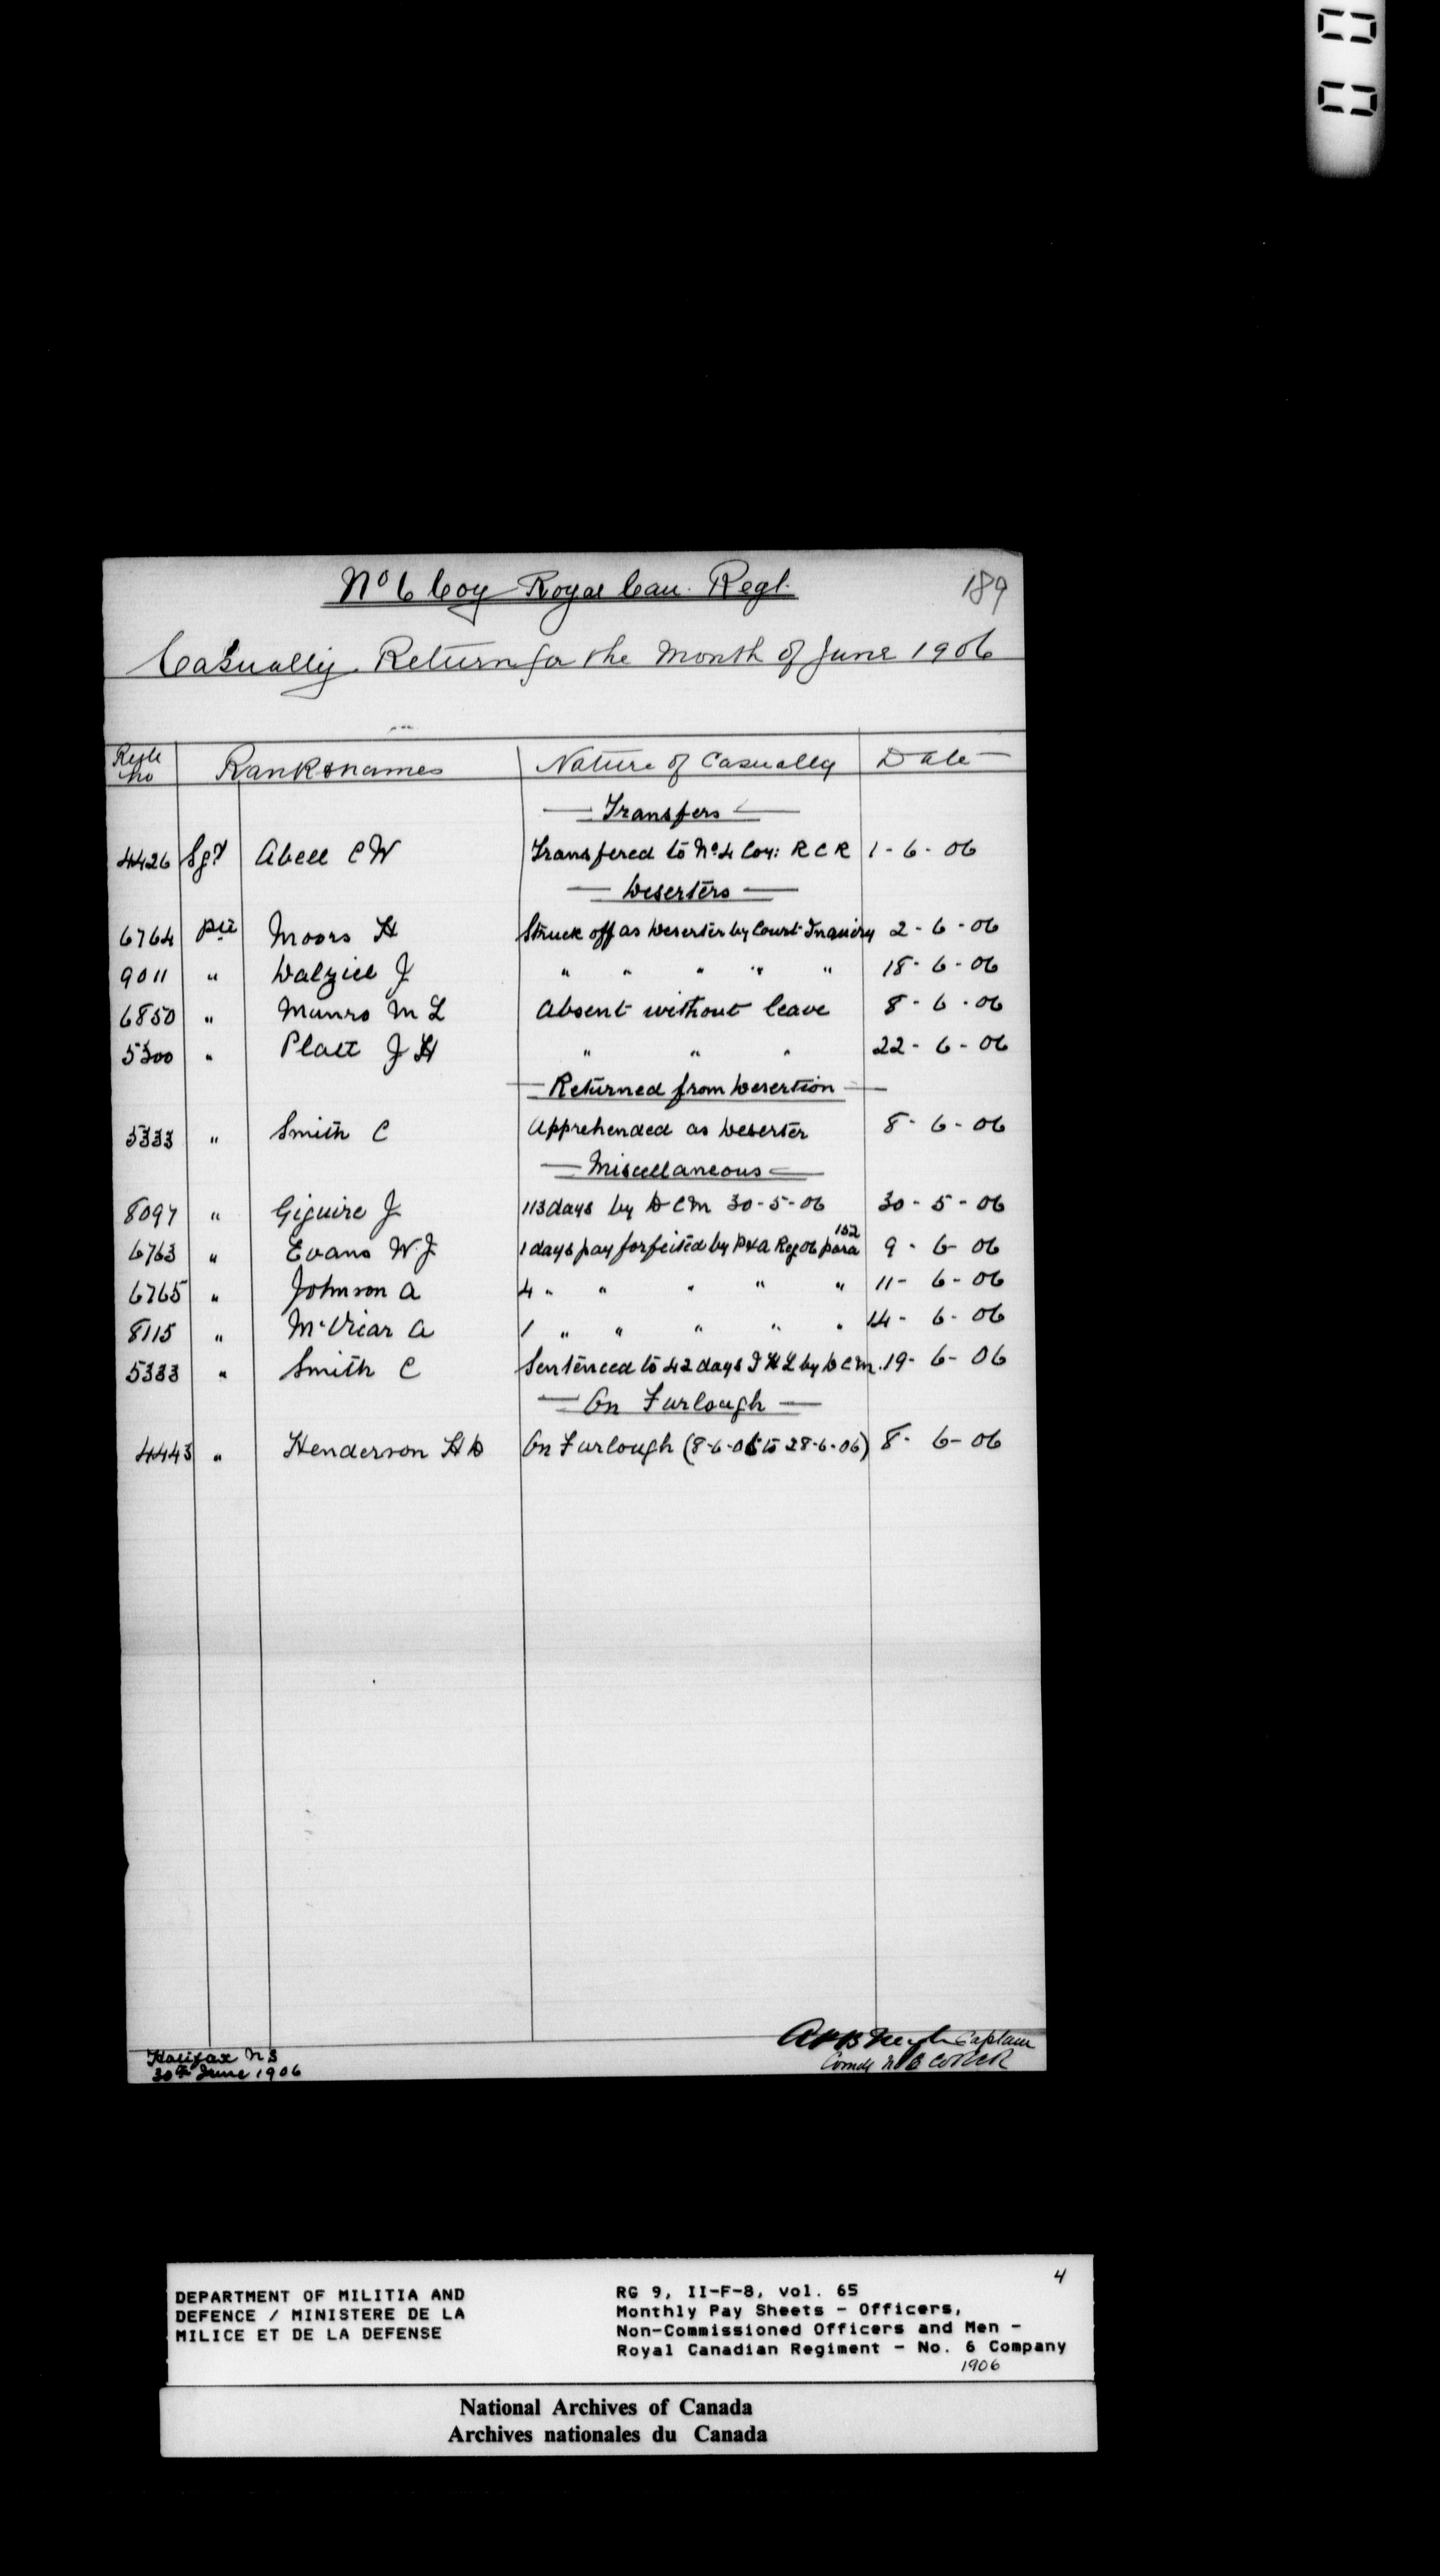 No 6 Coy Royal Can. Regt.
189
Casualty Return for the Month of June 1906
Regtl No Rank & names Nature of Casualty Date
Transfers
4426 Sgt Abell C W Transfered to No 4 Coy: R C R 1-6-06
Deserters
6764 Pte Moors H Struck off as Deserter by Court Inquiry 2-6-06
9011 " Dalziel J " " " " " 18-6-06
6850 " Munro M L Absent without leave 8-6-06
5300 " Platt J H " " " 22-6-06
Returned from Desertion
5333 " Smith C Apprehended as Deserter 8-6-06
Miscellaneous
8097 " Giguire J 113 days by D C M 30-5-06 30-5-06
6763 " Evans W.J 1 days pay forfeited by P&A Reg 06 para 152 9-6-06
6765 " Johnson A 4 " " " " " 11-6-06
8115 " McVicar A 1 " " " " " 14-6-06
5333 " Smith C Sentenced to 42 days I H L by D C M. 19-6-06
On Furlough
4443 " Henderson H D On Furlough (8-6-06 to 28-6-06) 8-6-06
Captain
Comdg No 6 Co RCR
Halifax N S
30th June 1906
4
DEPARTMENT OF MILITIA AND
DEFENCE / MINISTERE DE LA
MILICE ET DE LA DEFENSE
RG 9, II-F-8, vol. 65
Monthly Pay Sheets - Officers,
Non-Commissioned Officers and Men -
Royal Canadian Regiment - No. 6 Company
1906
National Archives of Canada
Archives nationales du Canada